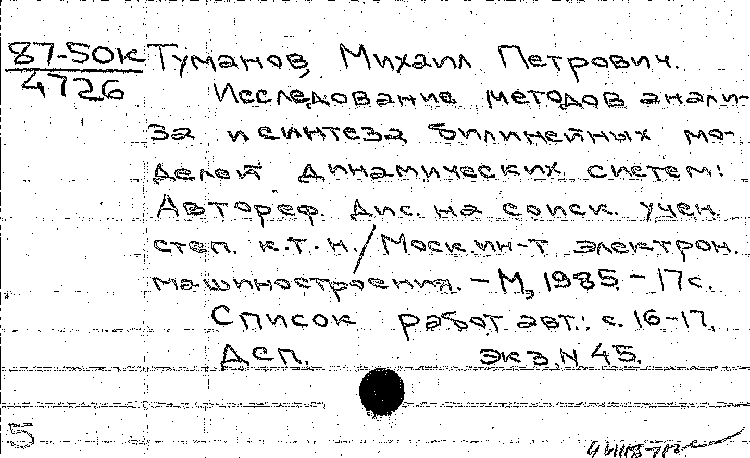 87-50к Туманов, Михаил Петрович.
4726
Исследование методов анали-
за и синтеза билинейных мо-
делей динамических систем:
Автореф. дис. на соиск. учен.
степ. к.т.н. / Моск. ин-т электрон.
машиностроения. - М., 1985 - 17 с.
Список работ авт.: с. 16-17.
ДСП. Экз. N 45.
5